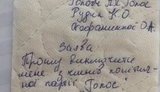 Голові ПК "Голос"
Рудик К.О.
О.А.
Заява
Прошу виключити
мене з членів політич-
ної партії "Голос"